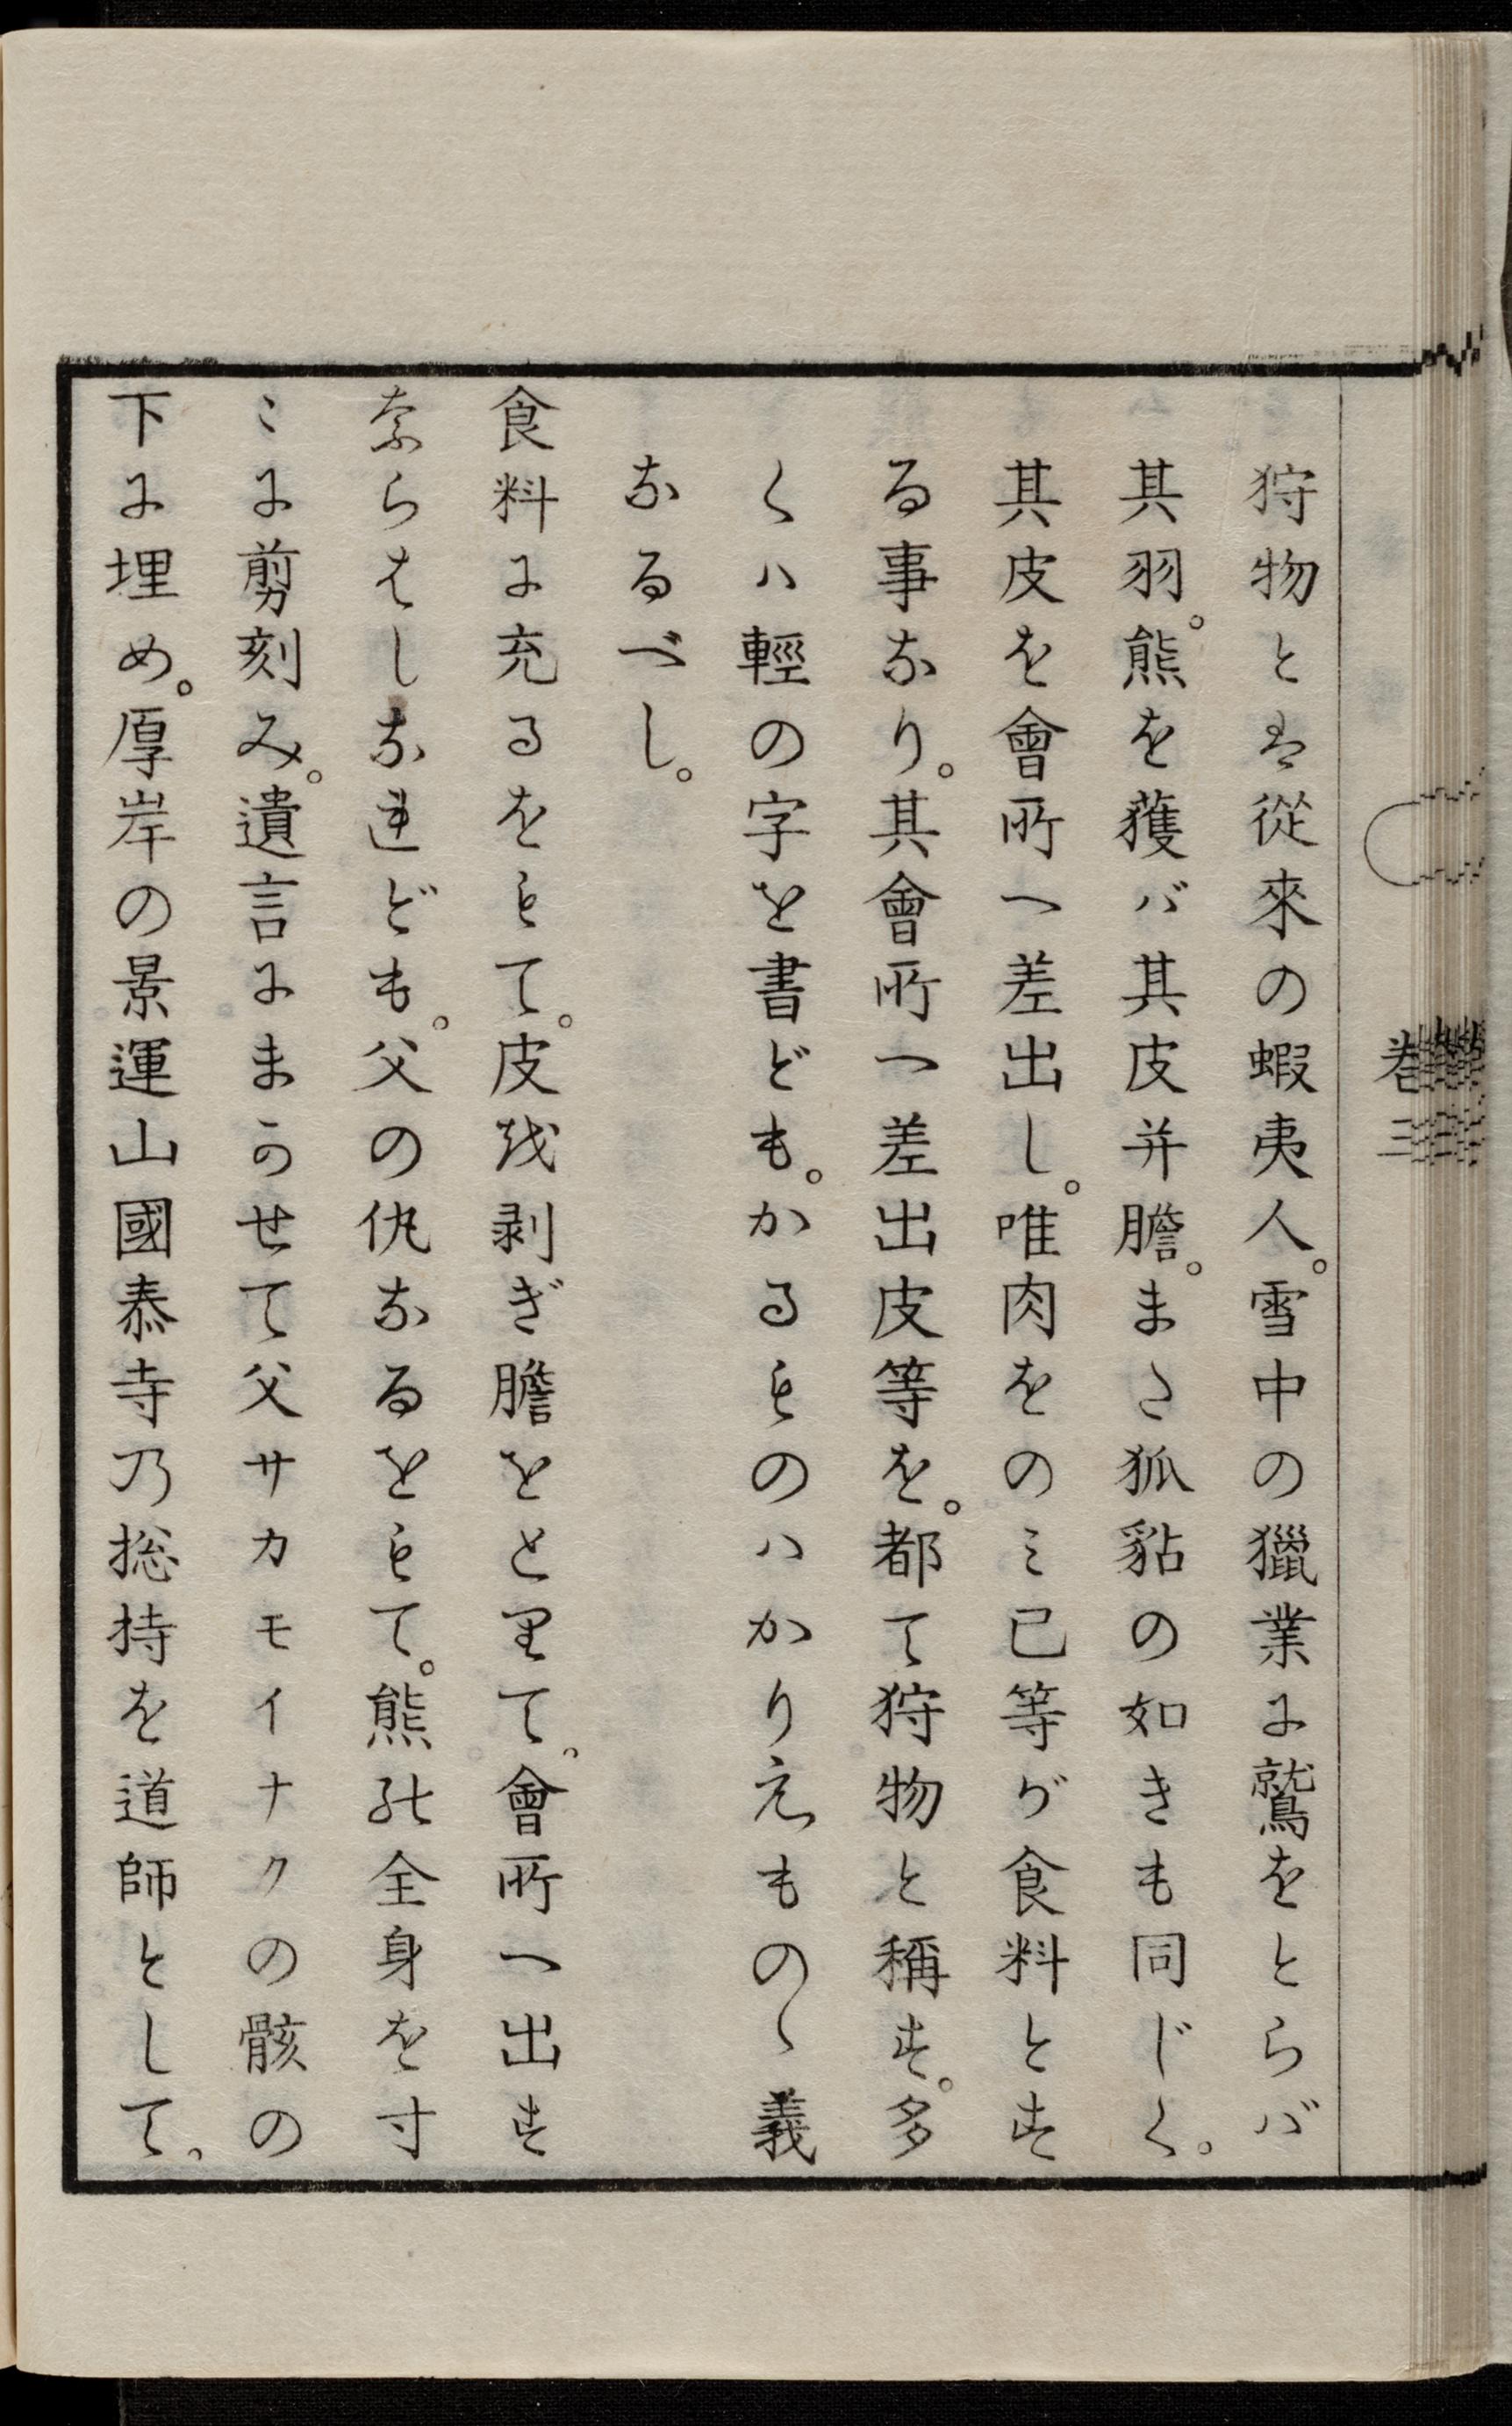 狩物とは從來の蝦夷人。雪中の獵業に鷲をとらバ
其羽。熊を獲バ其皮并膽。また狐貂の如きも同じく。
其皮を會所へ差出し。唯肉をのミ已等が食料とす
る事なり。其會所へ差出皮等を。都て狩物と稱す。多
くハ輕の字を書ども。かるものハかりえものゝ義
なるべし。
食料に充るをもて。皮を剥ぎ膽をとりて。會所へ出す
ならはしなれども。父の仇なるをもて。熊の全身を寸
〻に剪刻み。遺言にまかせて父サカモイナクの骸の
下に埋め。厚岸の景運山國泰寺乃総持を道師として、
卷三